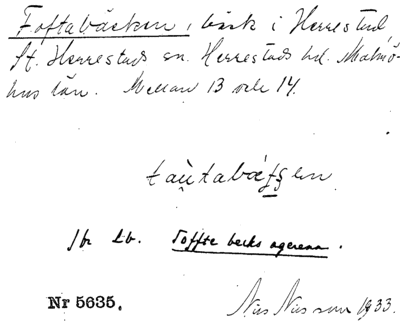 Toftabäcken, bäck i Herrestad,
St. Herrestads sn. Herrestads hd. Malmö-
hus län. Mellan 13 och 14.
Jbr Lb. Toffte becks agerenn.
Nr 5635.
Nils Nilsson 1933.